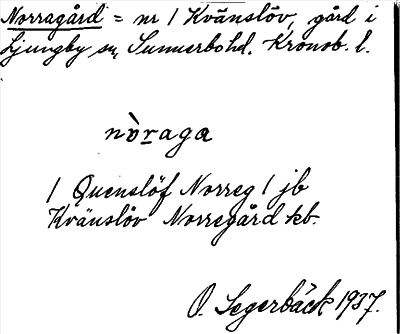 Norragård = nr 1 Kvänslöv, gård i
Ljungby sn, Sunnerbo hd. Kronob. l.
nòraga
1 Quenslöf Norreg 1 jb
Kvänslöv Norregård kb.
O. Segerbäck 1937.